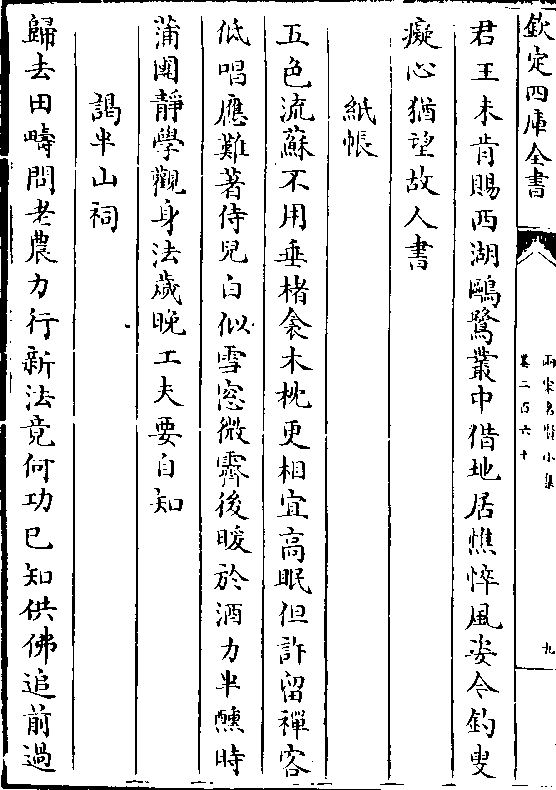 欽定四庫全書
兩宋名賢小集
卷二百六十
九
君王未肯賜西湖鷗鷺叢中借地居憔悴風姿今釣叟
癡心猶望故人書
紙帳
五色流蘇不用垂楮衾木枕更相宜高眠但許留禪客
低唱應難著侍兒白似雪窓微霽後暖於酒力半醺時
蒲團靜學觀身法歲晚工夫要自知
謁半山祠
歸去田疇問老農力行新法竟何功已知供佛追前過